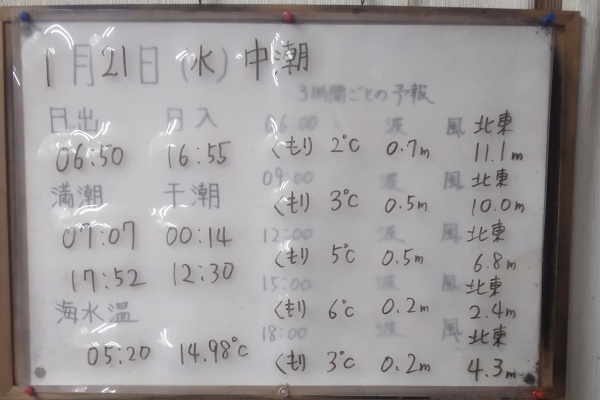 1月21日(水)中潮
3時間ごとの予報
日出 日入
06:50 16:55
満潮 干潮
07:07 00:14
17:52 12:30
海水温
05:20 14.98℃
06:00 波 風 北東
くもり 2℃ 0.7m 11.1m
09:00 波 風 北東
くもり 3℃ 0.5m 10.0m
12:00 波 風 北東
くもり 5℃ 0.5m 6.8m
15:00 波 風 北東
くもり 6℃ 0.2m 2.4m
18:00 波 風 北東
くもり 3℃ 0.2m 4.3m